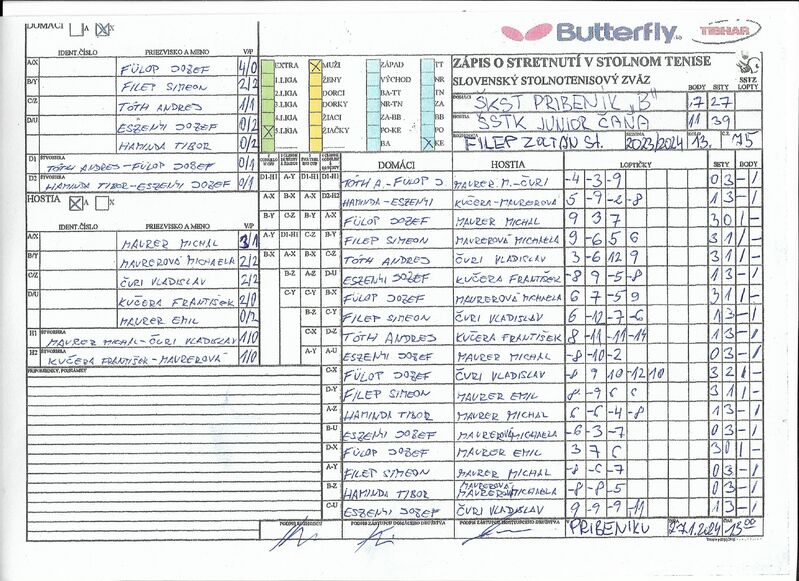 DOMÁCI A X
IDENT.ČÍSLO PRIEZVISKO A MENO V/P
A/X FÜLOP JOZEF 4/0
B/Y FILEP SIMEON 2/2
C/Z TÓTH ANDREJ 1/1
D/U ESZENYI JOZEF 0/2
HAMINDA TIBOR 0/2
D1 ŠTVORHRA TÓTH ANDREJ-FÜLOP JOZEF 0/1
D2 ŠTVORHRA HAMINDA TIBOR-ESZENYI JOZEF 0/1
HOSTIA X
IDENT.ČÍSLO PRIEZVISKO A MENO V/P
A/X MAURER MICHAL 3/1
B/Y MAUREROVÁ MICHAELA 2/2
C/Z ČURI VLADISLAV 2/2
D/U KUČERA FRANTIŠEK 2/0
MAURER EMIL 0/2
H1 ŠTVORHRA MAURER MICHAL-ČURI VLADISLAV 1/0
H2 ŠTVORHRA KUČERA FRANTIŠEK-MAUREROVÁ 1/0
PRIPOMIENKY, POZNÁMKY
EXTRA X MUŽI ZÁPAD TT
1.LIGA ŽENY VÝCHOD NR
2.LIGA DORCI BA-TT TN
3.LIGA DORKY NR-TN ZA
4.LIGA ŽIACI ZA-BB BB
X 5.LIGA ŽIAČKY PO-KE PO
BA X KE
Butterfly
TIBHAR
ZÁPIS O STRETNUTÍ V STOLNOM TENISE
SLOVENSKÝ STOLNOTENISOVÝ ZVÄZ
SSTZ
BODY SETY LOPTY
DOMÁCI ŠKST PRIBENÍK „B" 7 27
HOSTIA ŠSTK JUNIOR ČAŇA 11 39
FILEP ZOLTÁN St. 2023/2024 13. 75
DOMÁCI HOSTIA LOPTIČKY SETY BODY
TÓTH A.-FÜLOP J. MAURER M.-ČURI -4 -3 -9 0 3 - 1
HAMINDA-ESZENYI KUČERA-MAUREROVÁ 5 -9 -2 -8 1 3 - 1
FÜLOP JOZEF MAURER MICHAL 9 3 7 3 0 1 -
FILEP SIMEON MAUREROVÁ MICHAELA 9 -6 5 6 3 1 1 -
TÓTH ANDREJ ČURI VLADISLAV 3 -6 12 9 3 1 1 -
ESZENYI JOZEF KUČERA FRANTIŠEK -8 9 -5 -8 1 3 - 1
FÜLOP JOZEF MAUREROVÁ MICHAELA 6 7 -5 9 3 1 1 -
FILEP SIMEON ČURI VLADISLAV 6 -12 -7 -6 1 3 - 1
TÓTH ANDREJ KUČERA FRANTIŠEK 8 -11 -11 -14 1 3 - 1
ESZENYI JOZEF MAURER MICHAL -8 -10 -2 0 3 - 1
FÜLOP JOZEF ČURI VLADISLAV -8 9 10 -12 10 3 2 1 -
FILEP SIMEON MAURER EMIL 8 -9 6 6 3 1 1 -
HAMINDA TIBOR MAURER MICHAL 6 -6 -4 -8 1 3 - 1
ESZENYI JOZEF MAUREROVÁ MICHAELA -6 -3 -7 0 3 - 1
FÜLOP JOZEF MAURER EMIL 3 7 6 3 0 1 -
FILEP SIMEON MAURER MICHAL -8 -6 -7 0 3 - 1
HAMINDA TIBOR MAUREROVÁ MICHAELA -8 -8 -5 0 3 - 1
ESZENYI JOZEF ČURI VLADISLAV -9 -9 -11 0 3 - 1
PODPIS ROZHODCU PODPIS ZÁSTUPCU DOMÁCEHO DRUŽSTVA PODPIS ZÁSTUPCU HOSŤUJÚCEHO DRUŽSTVA PRIBENÍKU 27.1.2024 15:00